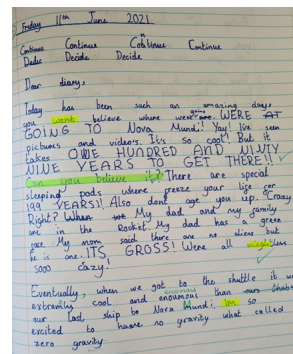 Friday 11th June 2021
Continue Continue Continue Continue
Decide Decide Decide
Dear diary,
Today has been such an amazing day,
you want believe where were going. WERE AT
GOING TO Nova Mundi! Yay! I've seen
pictures and video's. It's so cool! But it
takes ONE HUNDRED AND NINTY
NINE YEARS TO GET THERE!!
Can you believe it? There are special
sleeping pods where freeze your life for
199 YEARS!! Also dont age you up. Crazy
Right? When My dad and my family
are in the Rocket. My dad has a green
face. My mom said there are no aliens but
he is one. IT'S GROSS! Were all weightless
sooo crazy!
Eventually, when we got to the shuttle it w
extremly cool and enoumous than
enormous
our last ship to Nova Mundi. Im so
excited to have no gravity what called
zero gravity